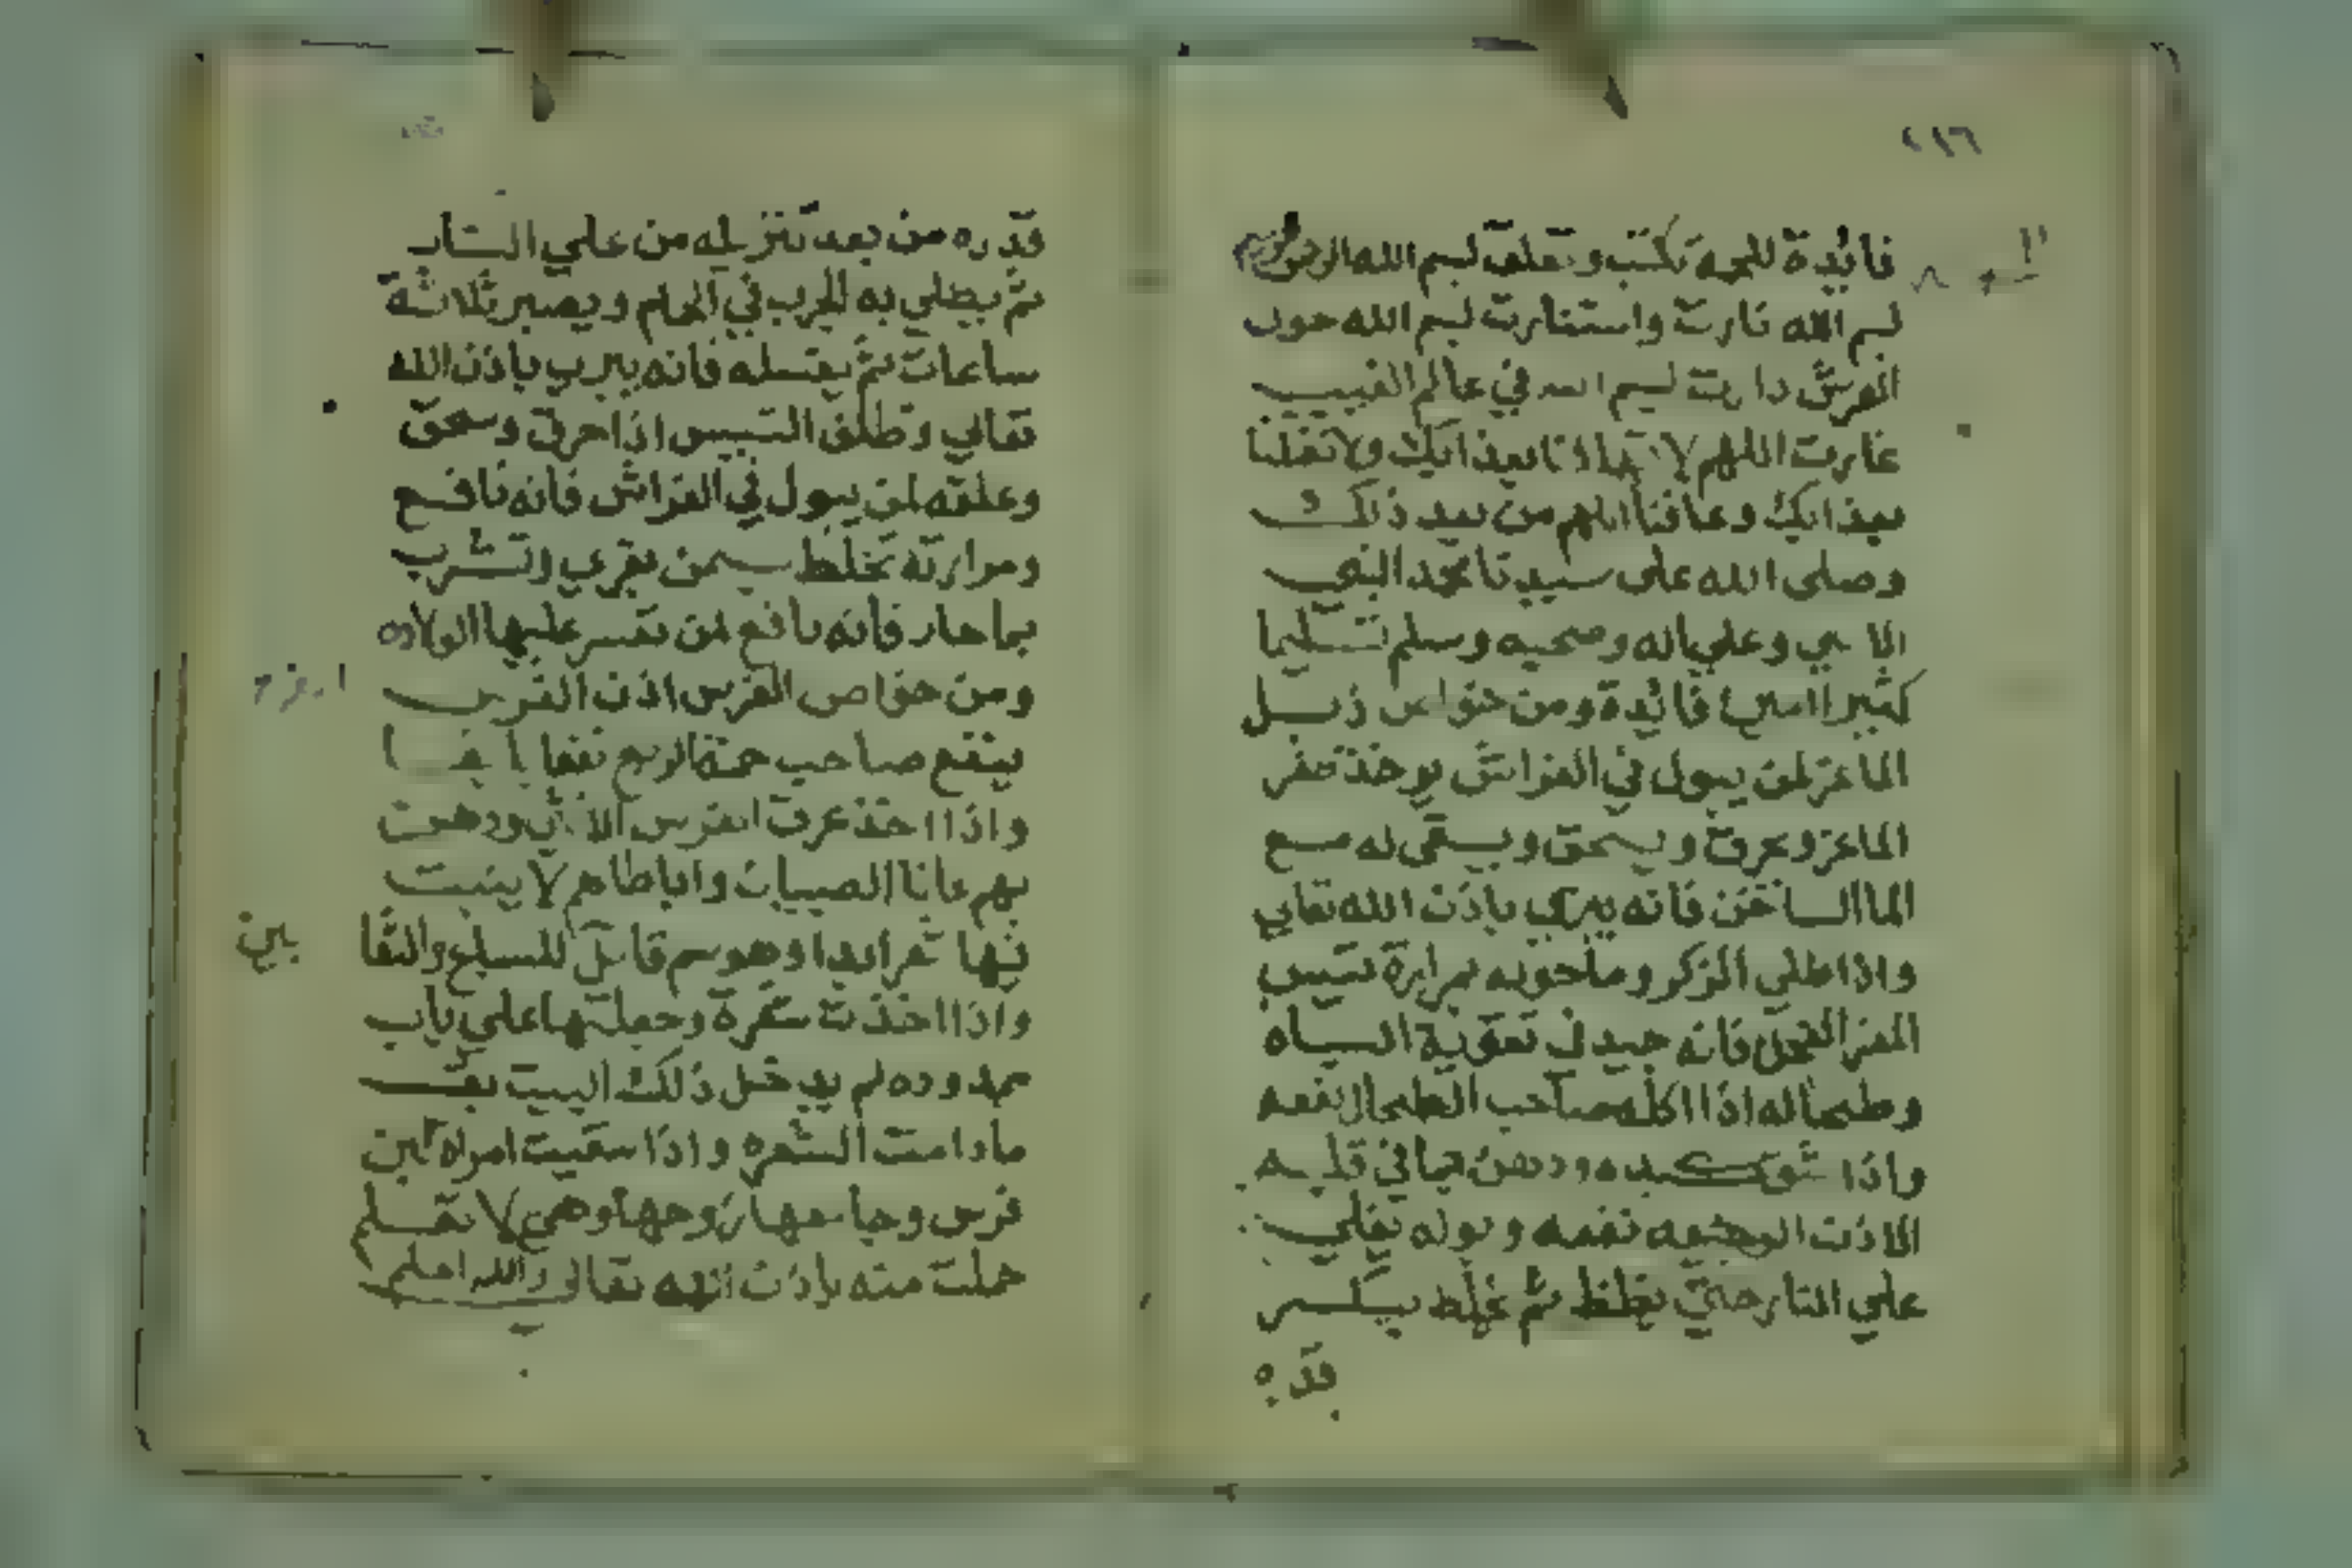 ١١٦
فايدة للحمه تكتب وتعلق بسم الله الرحمن الرحيم
بسم الله نارت واستنارت بسم الله حول
العرش دارت بسم الله في عالم الغيب
غارت اللهم لا بعذابك ولا تقتلنا
بعذابك وعافنا اللهم من بعد ذلك
وصلى الله على سيدنا محمد النبي
الامي وعلي اله وصحبه وسلم تسليما
كثيرا امين فايدة ومن خواص زبل
الماعز لمن يبول في الفراش يوخذ ظفر
الماعز ويحرق ويسحق ويسقى له مع
الما الساخن فانه يبري باذن الله تعالي
واذا طلي الذكر وما حوله بمرارة تيس
المعز الفحل فانه جيد في تقوية الباه
وطحاله اذا اكله صاحب الطحال نفعه
واذا شوي كبده ودهن بها في
الاذن الوجيعه نفعه وبوله يغلي
علي النار حتي يغلظ ثم يخلط بسكر
قدره
قدره من بعد تنزيله من علي النار
ثم يطلي به الجرب في الحمام ويصبر ثلاثة
ساعات ثم يغسله فانه يبري باذن الله
تعالي وظلف التيس اذا حرق وسحق
وعلقه لمن يبول في الفراش فانه نافع
ومرارته تخلط بسمن بقري وتشرب
بما حار فانه نافع لمن تعسر عليها الولاده
ومن خواص الفرس اذن الفرس
ينفع صاحب حمة الربع نفعا
واذا اخذ عرق الفرس ودهنت
بهم عانا الصبيان واباطاهم لا ينبت
فيها شعر ابدا وهو سم قاتل للسباع والثعا
بين
واذا اخذت شعرة وجعلتها علي باب
ممدوده لم يدخل ذلك البيت بق
مادامت الشعره واذا سقيت امراه لبن
فرس وجامعها زوجها وهي لا تعلم
حملت منه باذن الله تعالى والله اعلم